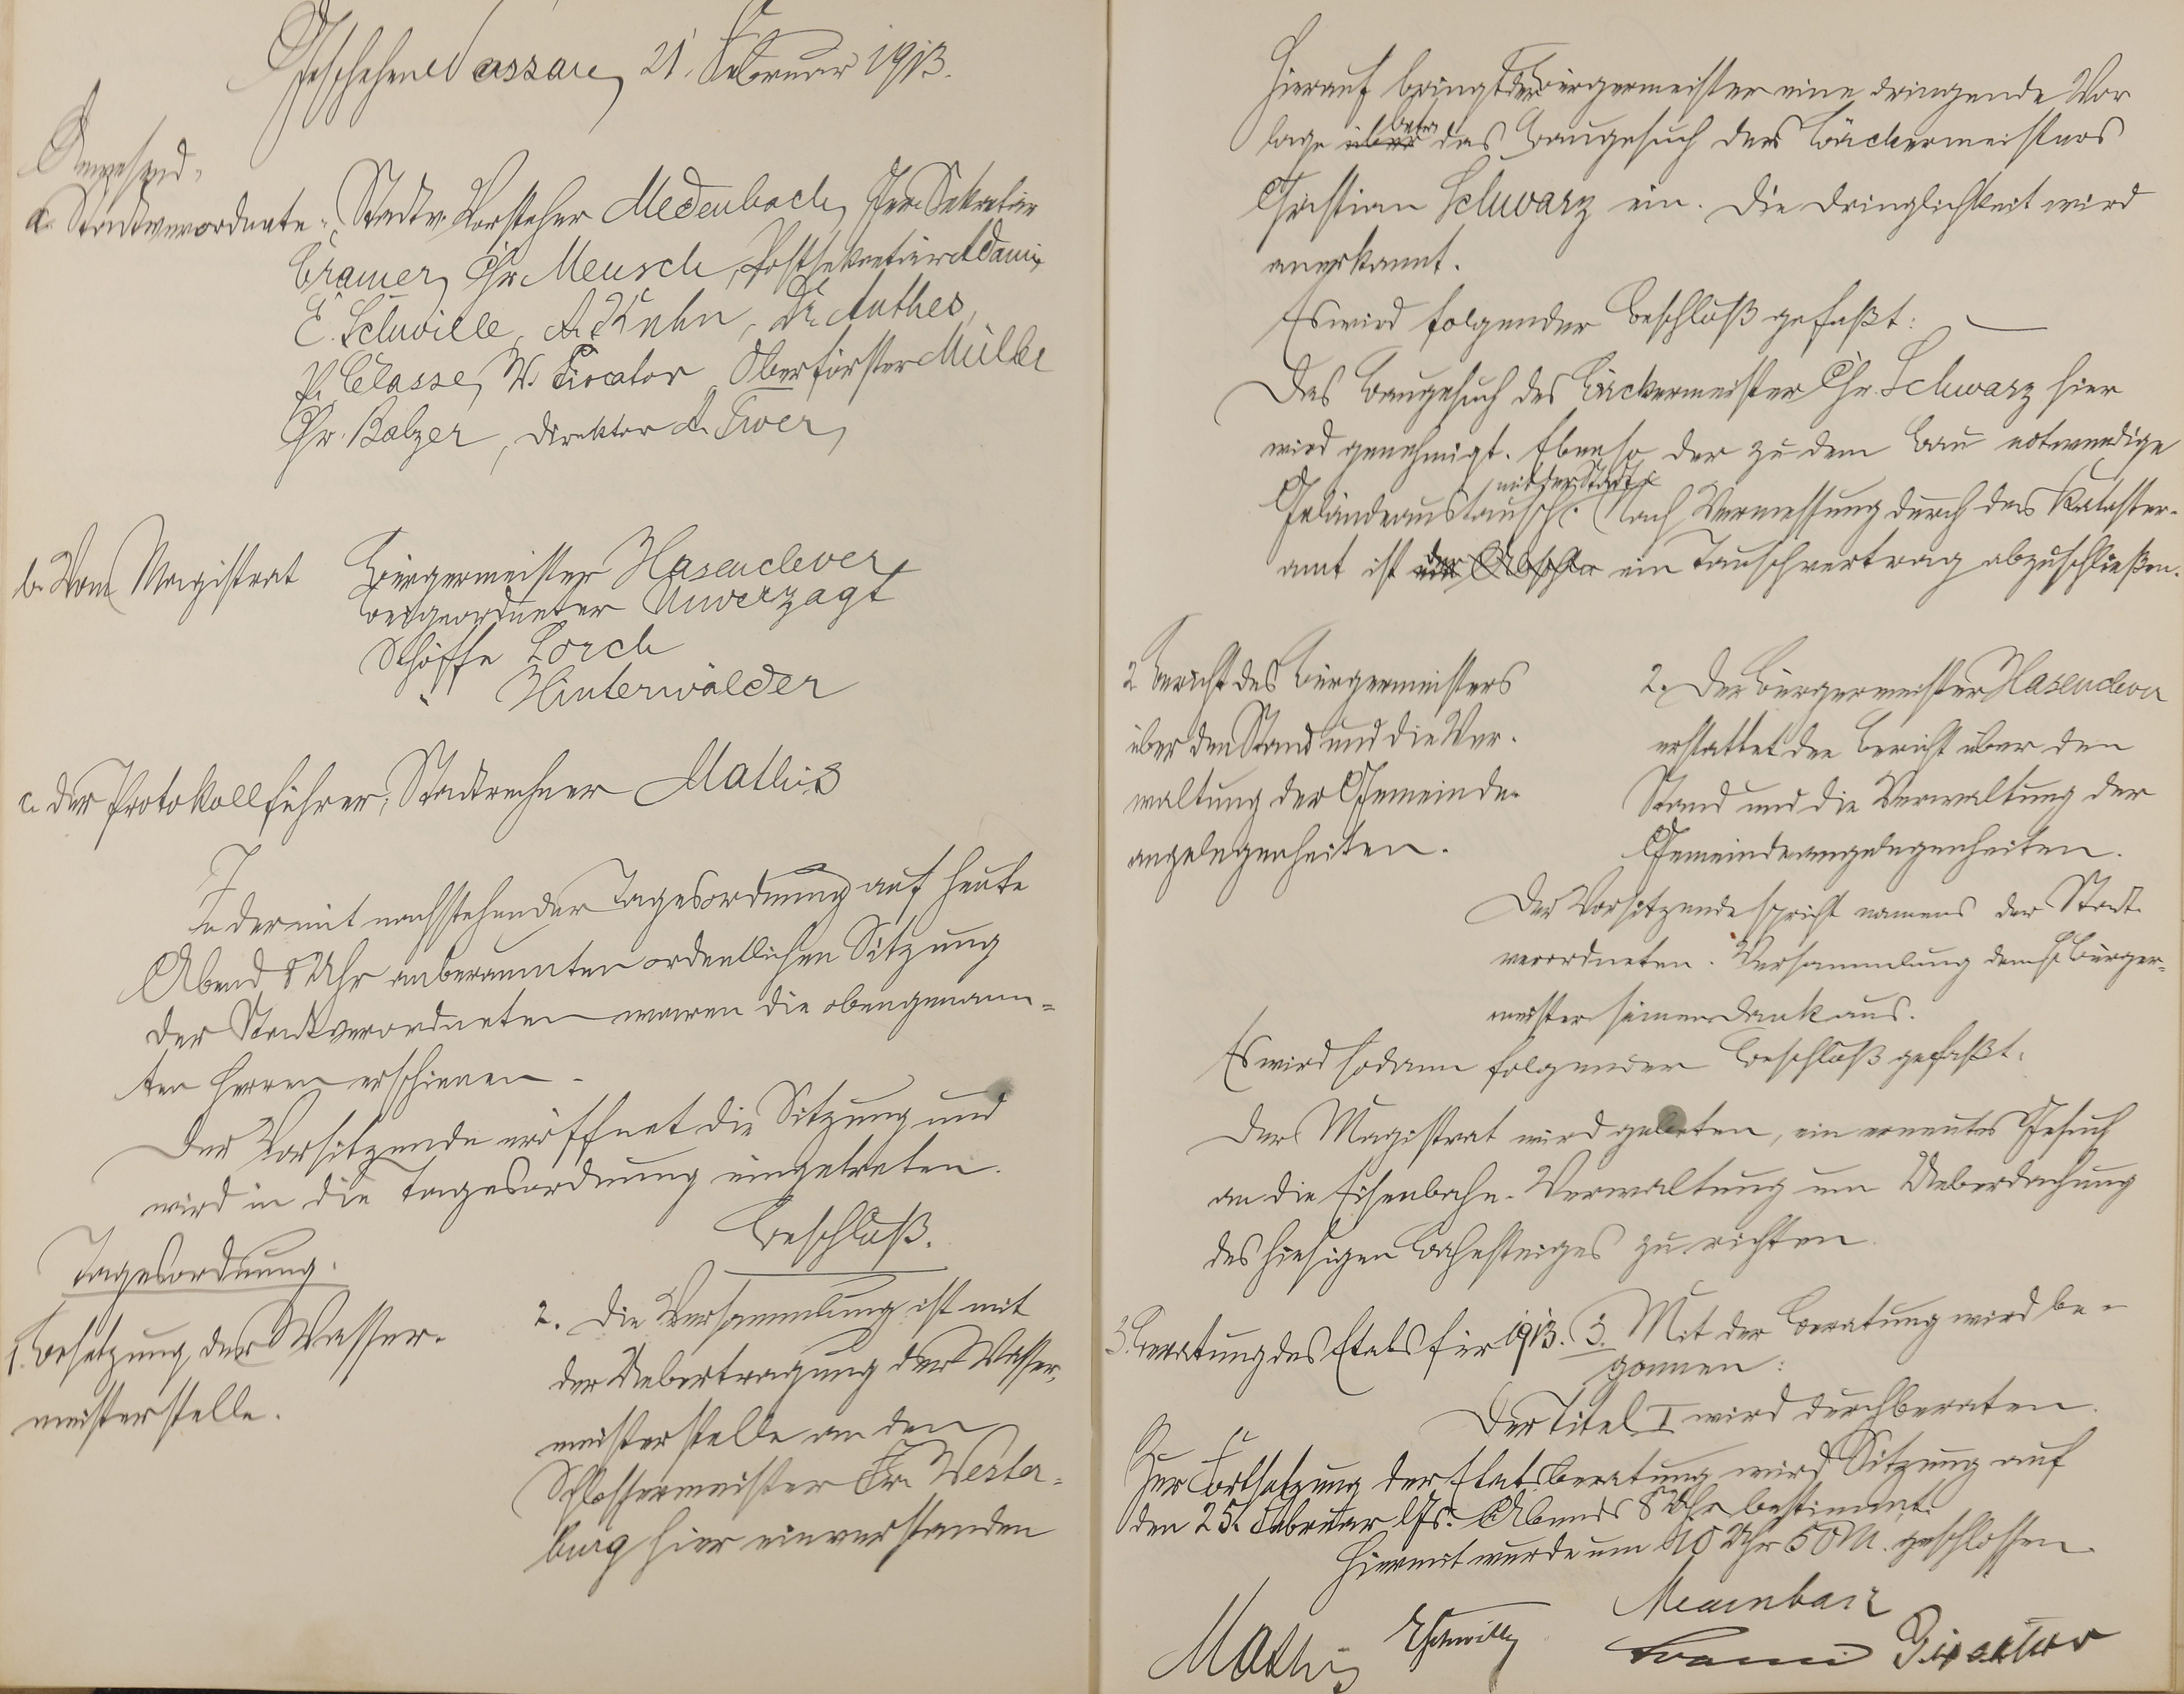 Geschehen Nassau, 21. Februar 1913.
Anwesend:
a. Stadtverordnete: Stadtv. Vorsteher Medenbach, Ger. Sekretär
Cramer, Chr. Meusch, Postsekretär Adami,
E. Schwille, A. Kuhn, Dr. Anthes,
P. Classe, W. Piscator, Oberförster Müller
Chr. Balzer, Direktor A. Twer,
b. Vom Magistrat Bürgermeister Hasenclever
Beigeordneter Unverzagt
Schöffe Lorch
" Hinterwälder
c. der Protokollführer, Stadtrechner Mathis
In der mit nachstehender Tagesordnung auf heute
Abend 8 Uhr anberaumten ordentlichen Sitzung
der Stadtverordneten waren die obengenann=
ten Herren erschienen.
Der Vorsitzende eröffnet die Sitzung und
wird in die Tagesordnung eingetreten.
Beschluß.
Tagesordnung.
1. Besetzung der Wasser-
meisterstelle.
2. Die Versammlung ist mit
der Uebertragung der Wasser-
meisterstelle an den
Schlossermeister Fr. Wester=
burg hier einverstanden
Hierauf bringt der Bürgermeister eine dringende Vor
lage über betr. das Baugesuch des Bäckermeisters
Christian Schwarz ein. Die Dringlichkeit wird
anerkannt.
Es wird folgender Beschluß gefaßt:
Das Baugesuch des Bäckermeister Chr. Schwarz hier
wird genehmigt. Ebenso der zu dem Bau notwendige
Geländeaustausch mit der Stadt. Nach Vermessung durch das Kataster-
amt ist ein Tauschvertrag abzuschließen.
2. Bericht des Bürgermeisters
über den Stand und die Ver-
waltung der Gemeinde-
angelegenheiten.
2. Der Bürgermeister Hasenclever
erstattet den Bericht über den
Stand und die Verwaltung der
Gemeindeangelegenheiten.
Der Vorsitzende spricht namens der Stadt-
verordneten-Versammlung dem H. Bürger=
meister seinen Dank aus.
Es wird sodann folgender Beschluß gefaßt:
Der Magistrat wird gebeten, ein erneutes Gesuch
an die Eisenbahn-Verwaltung um Ueberdachung
des hiesigen Bahnsteiges zu richten
3. Beratung des Etats für 1913.
3. Mit der Beratung wird be-
gonnen:
Der Titel I wird durchberaten.
Zur Fortsetzung der Etatsberatung wird Sitzung auf
den 25. Februar lfs. Abends 8 Uhr bestimmt.
Hiermit wurde um 10 Uhr 50 M. geschlossen.
Medenbach
Mathis ESchwille Piscator